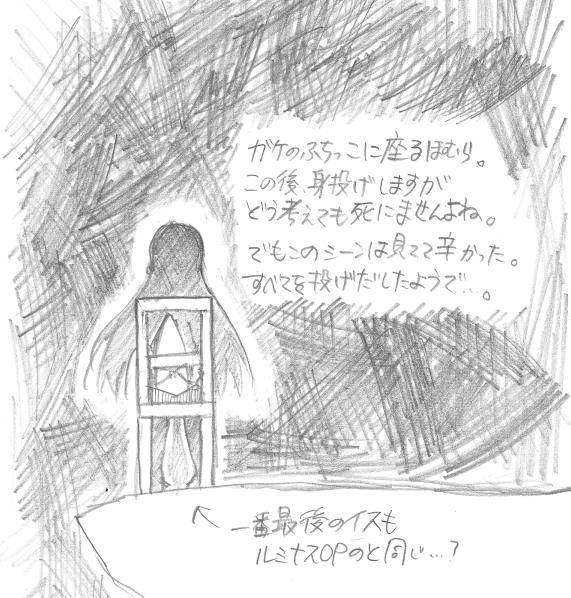 ガケのふちっこに座るほむら。
この後、身投げしますが
どう考えても死にませんよね。
でもこのシーンは見てて辛かった。
すべてを投げだしたようで…。
一番最後のイスも
ルミナスOPのと同じ…?